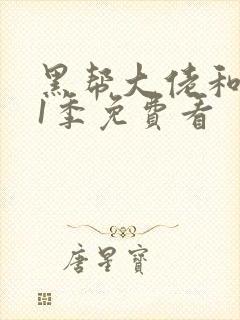 黑帮大佬和
1季免費看
唐星寶